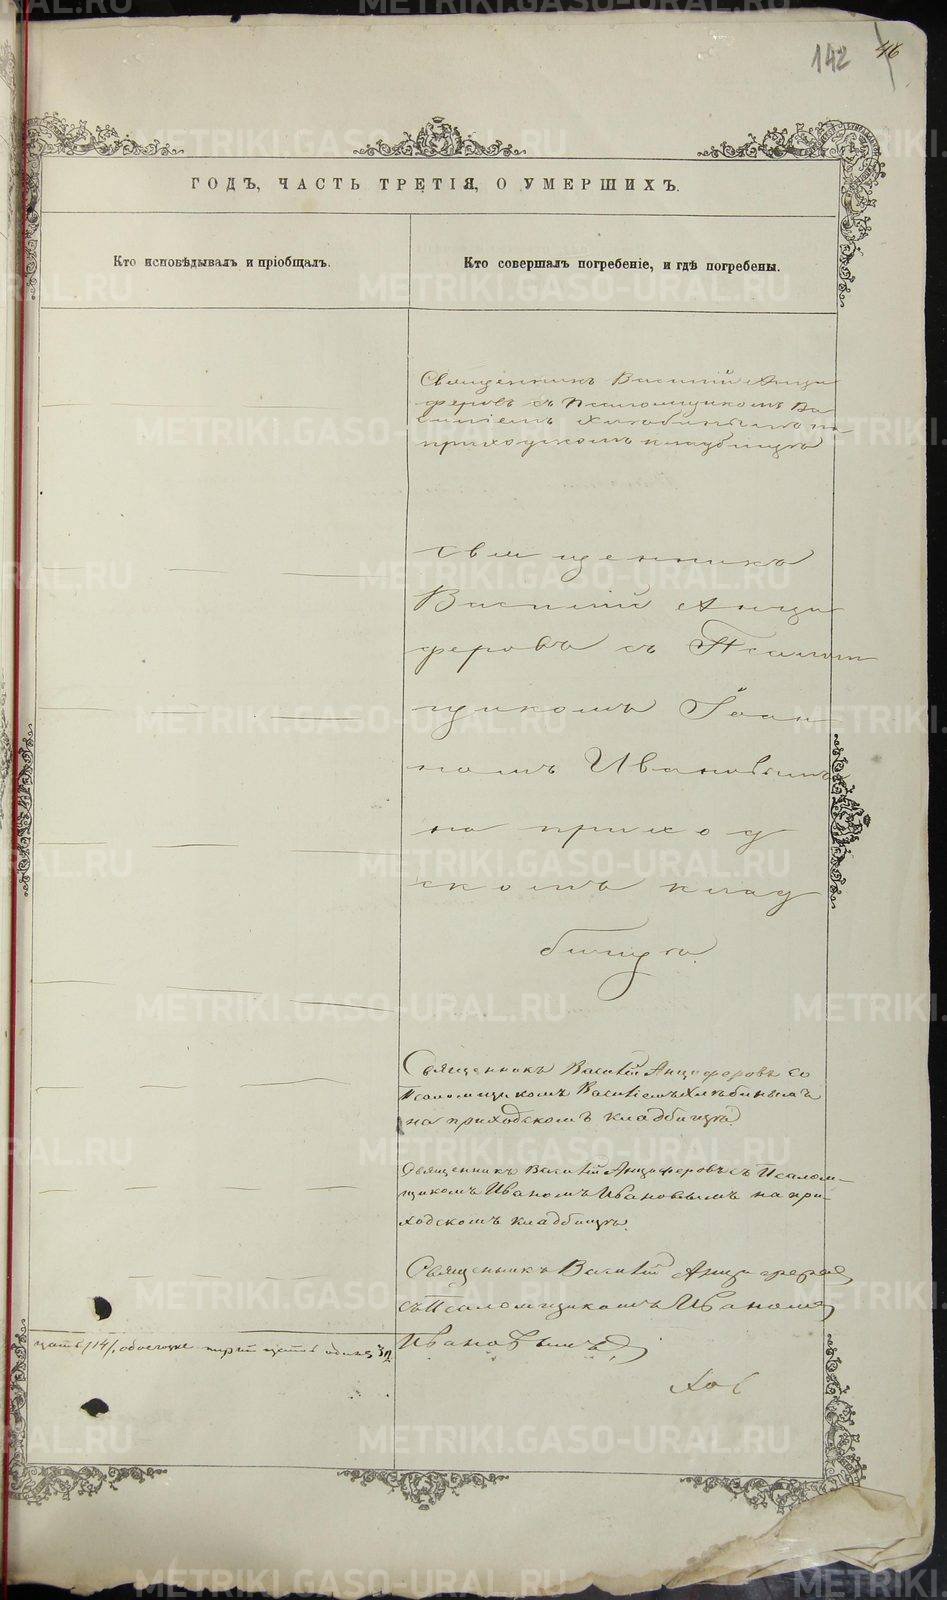 142 46
ГОДЪ, ЧАСТЬ ТРЕТІЯ, О УМЕРШИХЪ.
Кто исповѣдывалъ и пріобщалъ.
Кто совершалъ погребеніе, и гдѣ погребены.
Священникъ Василій Анци
феровъ съ Псаломщикомъ Ва
силіемъ Хлѣбинымъ на
приходскомъ кладбищѣ
Священникъ
Василій Анци
феровъ съ Псалом
щикомъ Іоан
номъ Ивановымъ
на приход
скомъ клад
бищѣ.
Священникъ Василій Анциферовъ со
Псаломщикомъ Василіемъ Хлѣбинымъ
на приходскомъ кладбищѣ.
Священникъ Василій Анциферовъ съ Псалом-
щикомъ Иваномъ Ивановымъ на при-
ходскомъ кладбищѣ.
Священникъ Василій Анциферовъ
съ Псаломщикомъ Иваномъ
Ивановымъ
цать /14/, обоего
METRIKI.GASO-URAL.RU